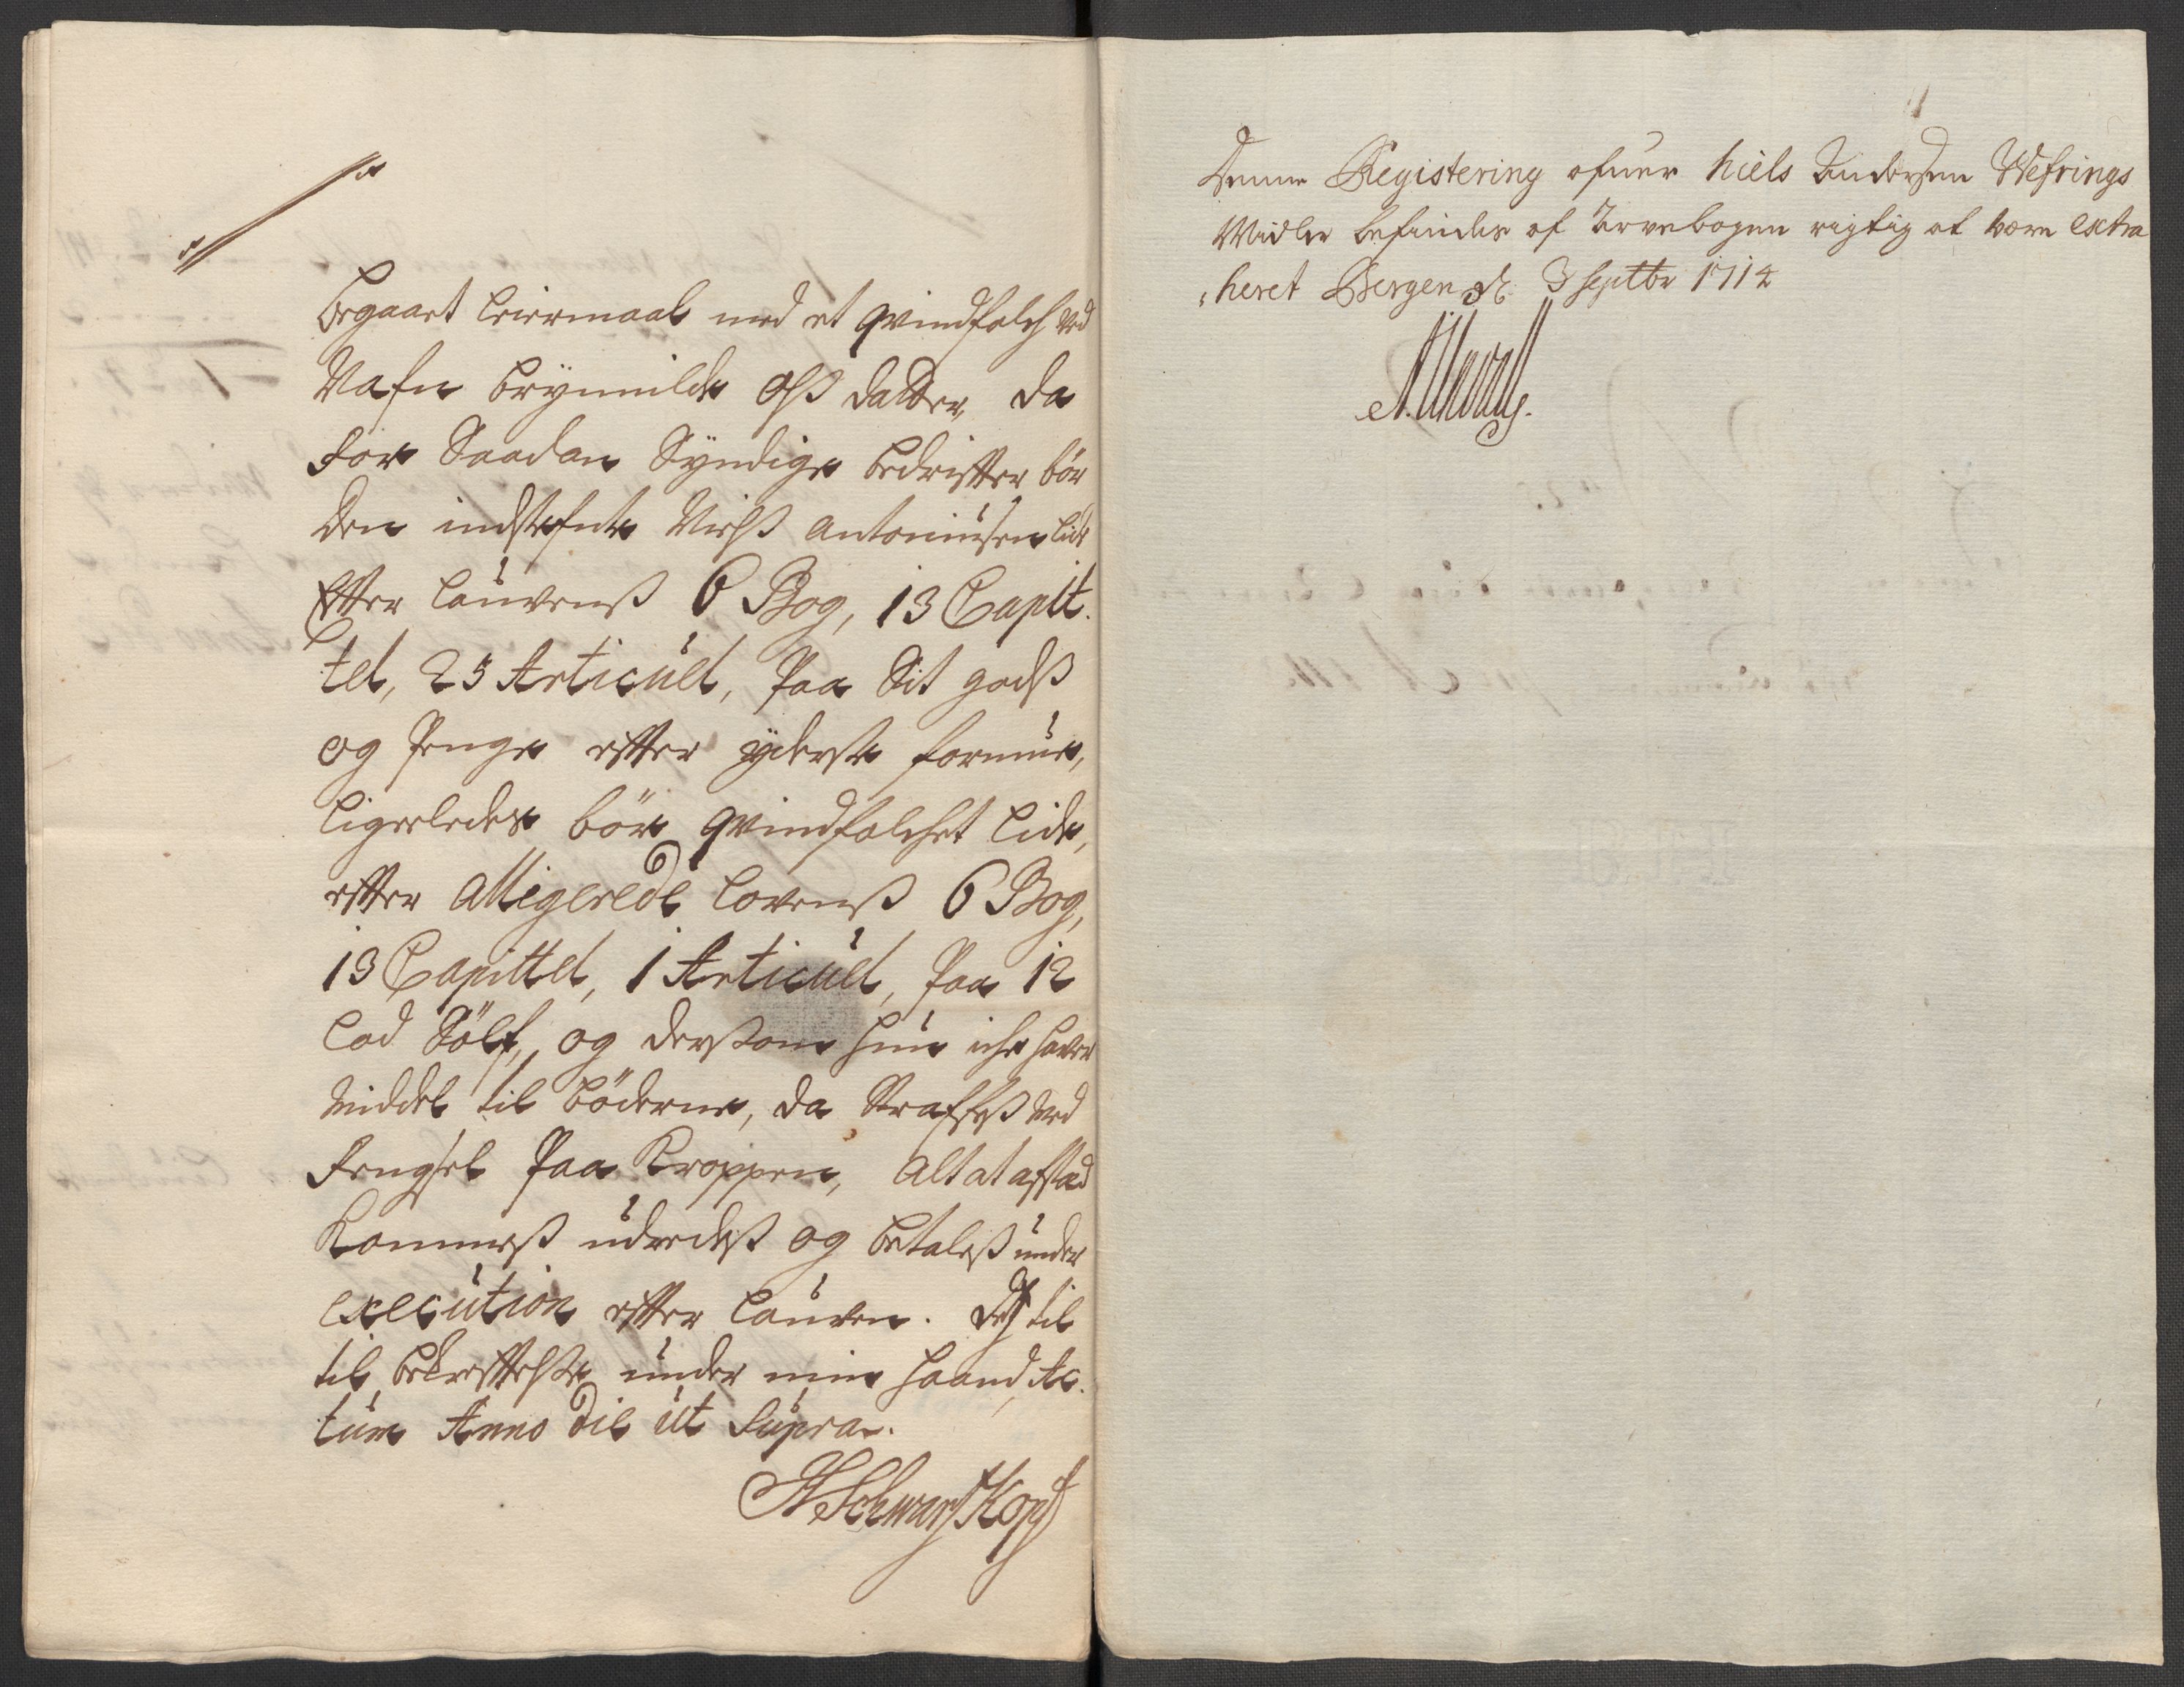 begaaet leiermaal med et qvindfolch ved
Nafn brynnilde Olß datter, da
for Saadan Syndige bedrifter bör
den indstefnte Nielß Antoniusen lide
Efter lauvenß 6 Bog, 13 Capit.
tel, 25 Articuel, paa Sit godß
og penge efter yderste formue,
ligeeledes bör qvindfolchet lide,
efter Alligerede lovenß 6 Bog,
13 Capittel, 1 Articuel, paa 12
lod Sölf, og dersom hun iche haver
Middel til böderne, da straffeß med
fengsel paa Kroppen, Alt at afstad
kommeß udredeß og betaleß under
execution efter lauven. Deß til
til bekreftelße under min haand, Ac.
tum Anno die ut Supra.
H Schwartzkopf
Denne Registering ofuer Niels Andersen Wefrings
Midler befindes af Arvebogen rigtig at være extra
heret Bergen d. 3 Septbr 1714